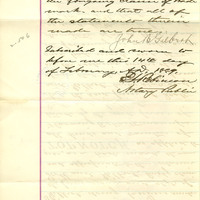 the foregoing claim of
work, and that all of
the statements therein
made are true.
John R Gilbreth
Subscribed and sworn to
before me this 14th day
of February A.D. 1889.
Notary Public